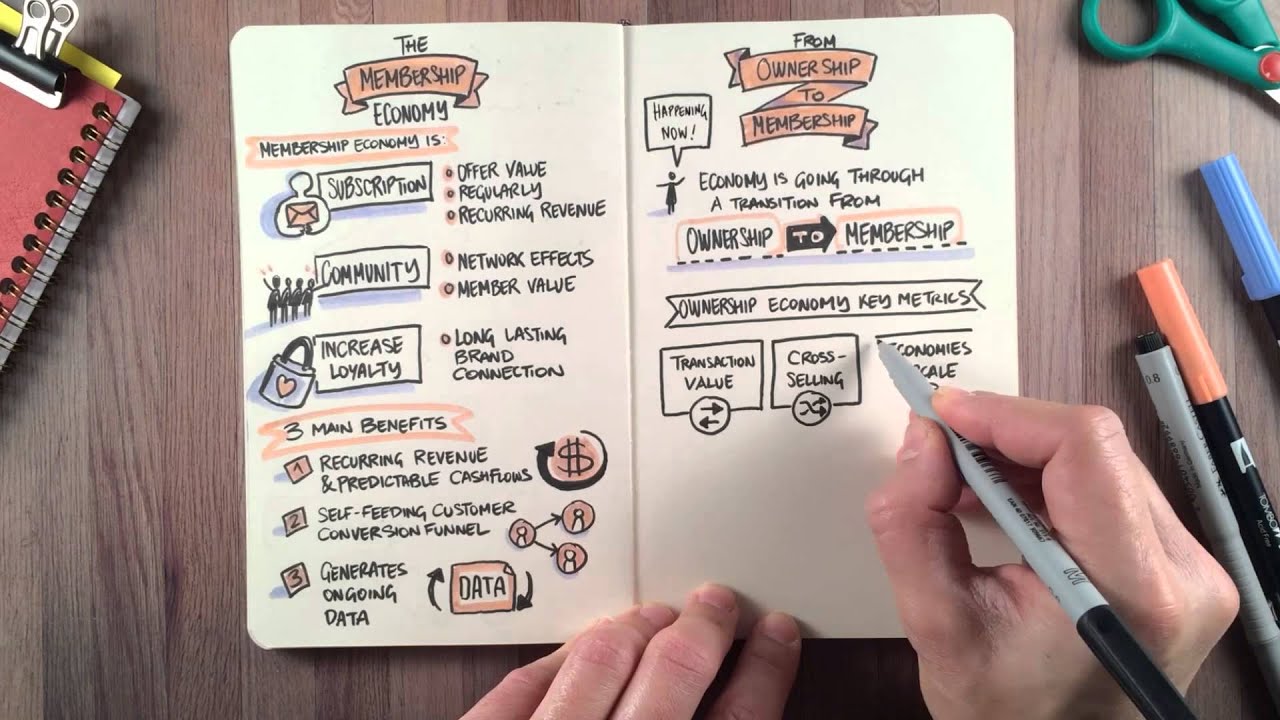 THE
MEMBERSHIP
ECONOMY
MEMBERSHIP ECONOMY IS:
SUBSCRIPTION
OFFER VALUE
REGULARLY
RECURRING REVENUE
COMMUNITY
NETWORK EFFECTS
MEMBER VALUE
INCREASE
LOYALTY
LONG LASTING
BRAND
CONNECTION
3 MAIN BENEFITS
1
RECURRING REVENUE
& PREDICTABLE CASHFLOWS
$
2
SELF-FEEDING CUSTOMER
CONVERSION FUNNEL
3
GENERATES
ONGOING
DATA
DATA
FROM
OWNERSHIP
TO
MEMBERSHIP
HAPPENING
NOW!
ECONOMY IS GOING THROUGH
A TRANSITION FROM
OWNERSHIP TO MEMBERSHIP
OWNERSHIP ECONOMY KEY METRICS
TRANSACTION
VALUE
CROSS-
SELLING
ECONOMIES
0.8
TOMBOW